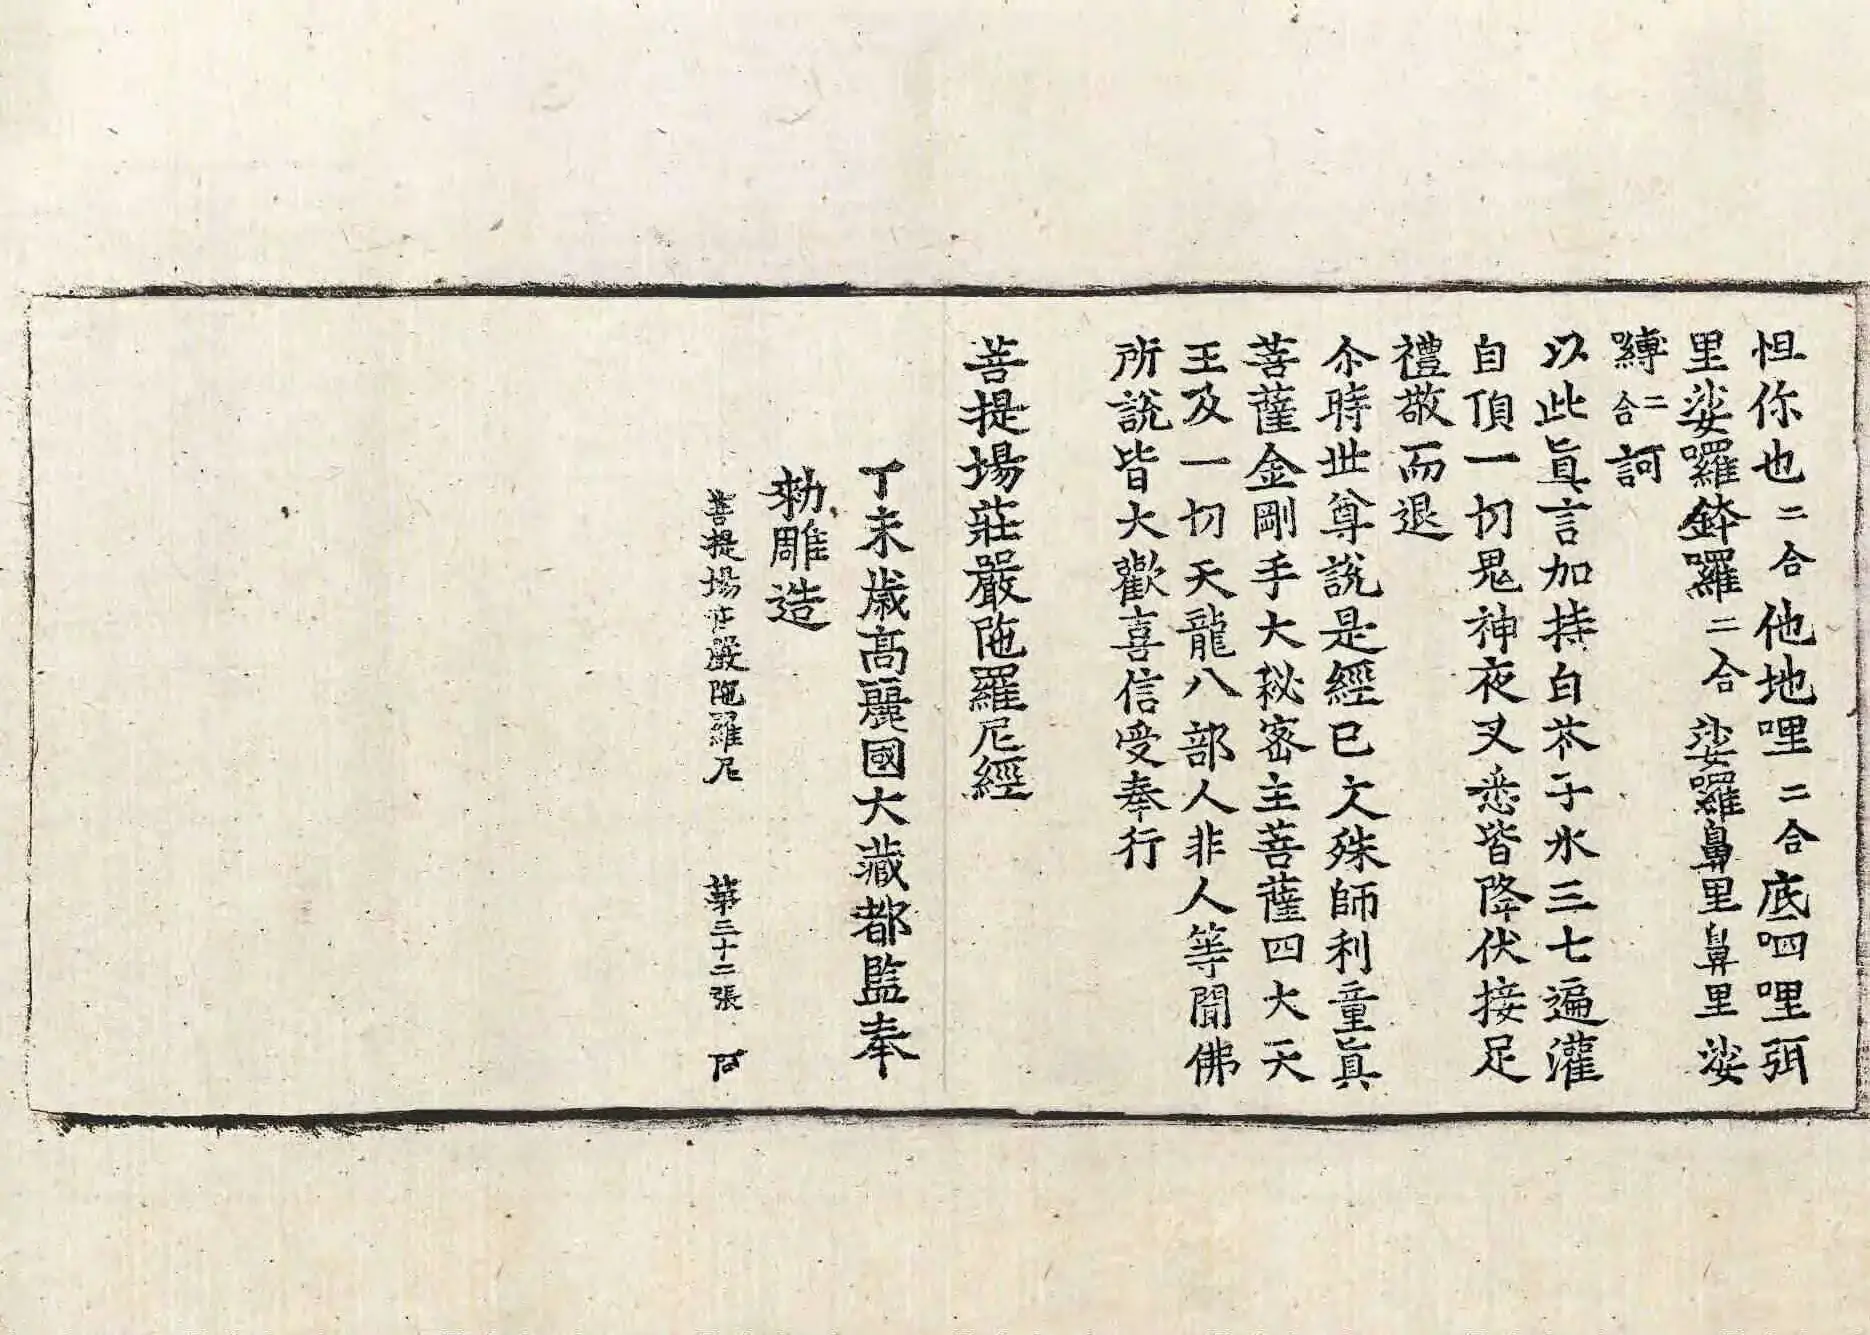 怛你也二合他地哩二合底呬哩弭
里娑囉鉢囉二合娑囉鼻里鼻里娑
嚩二合訶
以此眞言加持白芥子水三七遍灌
自頂一切鬼神夜叉悉皆降伏接足
禮敬而退
尒時世尊說是經已文殊師利童眞
菩薩金剛手大秘密主菩薩四大天
王及一切天龍八部人非人等聞佛
所說皆大歡喜信受奉行
菩提場莊嚴陁羅尼經
丁未歲高麗國大藏都監奉
勑雕造
菩提場庄嚴陁羅尼 第三十二張